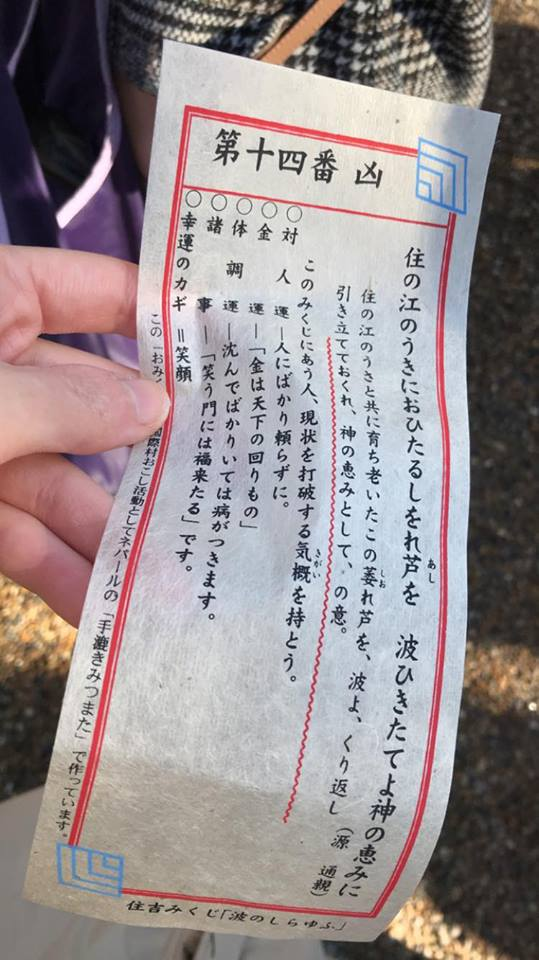 第十四番 凶
住の江のうきにおひたるしをれ芦を 波ひきたてよ神の恵みに
あし
(源 通親)
住の江のうきと共に育ち老いたこの萎れ芦を、波よ、くり返し
しお
引き立てておくれ、神の恵みとして、の意。
このみくじにあう人、現状を打破する気概を持とう。
きがい
○対人運―人にばかり頼らずに。
○金運―「金は天下の回りもの」
○体調運―沈んでばかりいては病がつきます。
○諸事―「笑う門には福来たる」です。
○幸運のカギ=笑顔
この「おみく 国際村おこし活動としてネパールの「手漉きみつまた」で作っています。
住吉みくじ「波のしらゆふ」